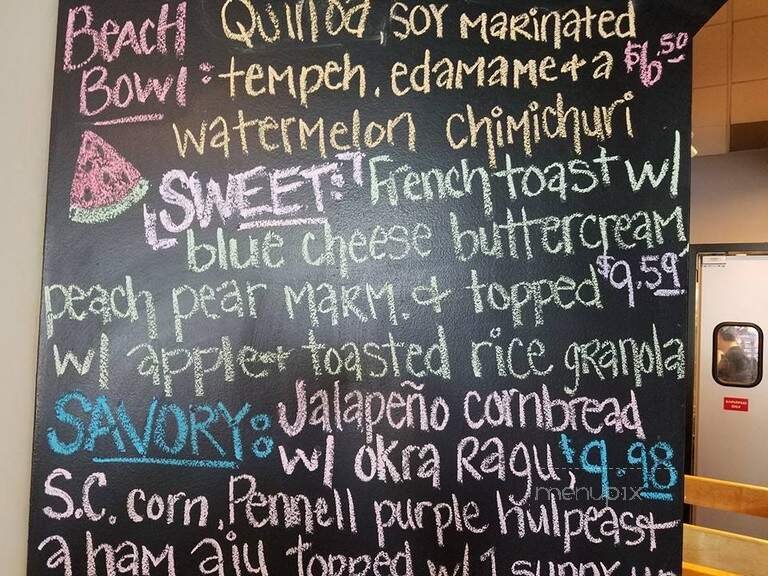 BEACH Quinoa, soy marinated
Bowl: tempeh, edamame & a $6.50
watermelon chimichuri
SWEET: French toast w/
blue cheese buttercream
peach pear marm. & topped $9.59
w/ apple & toasted rice granola
SAVORY: Jalapeño cornbread
w/ okra Ragu, $9.98
S.C. corn, Pennell purple hullpeas +
a ham aju topped w/ 1 sunny up
menupix